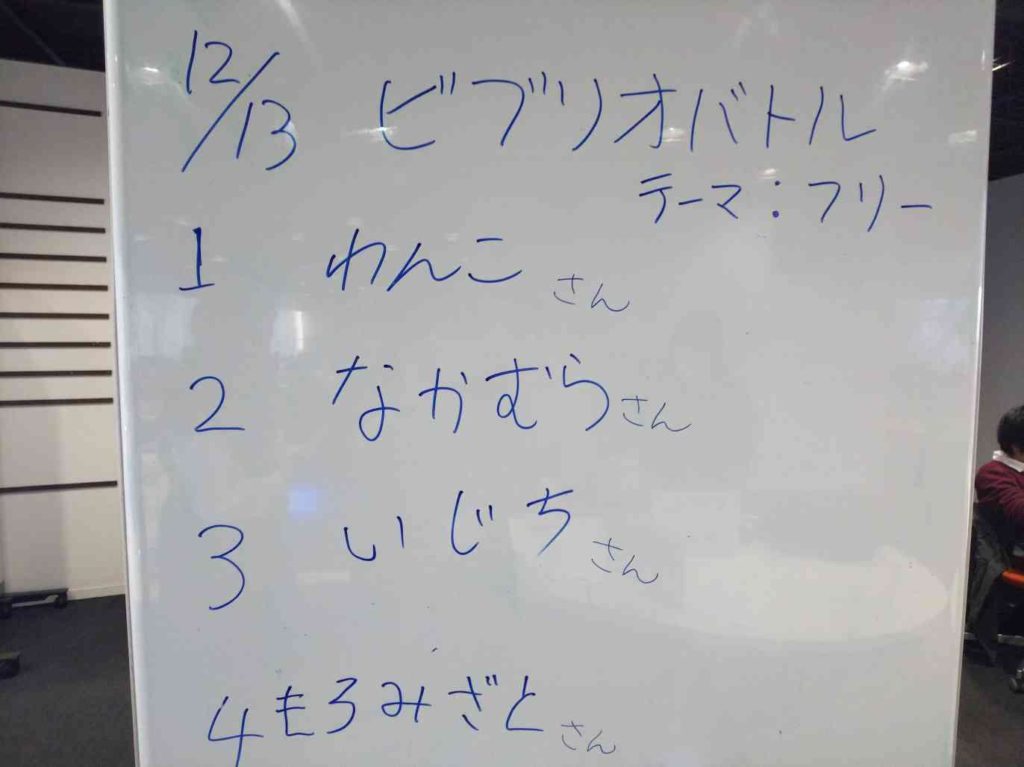 12/13 ビブリオバトル
テーマ:フリー
1 わんこさん
2 なかむらさん
3 いじちさん
4 もろみざとさん